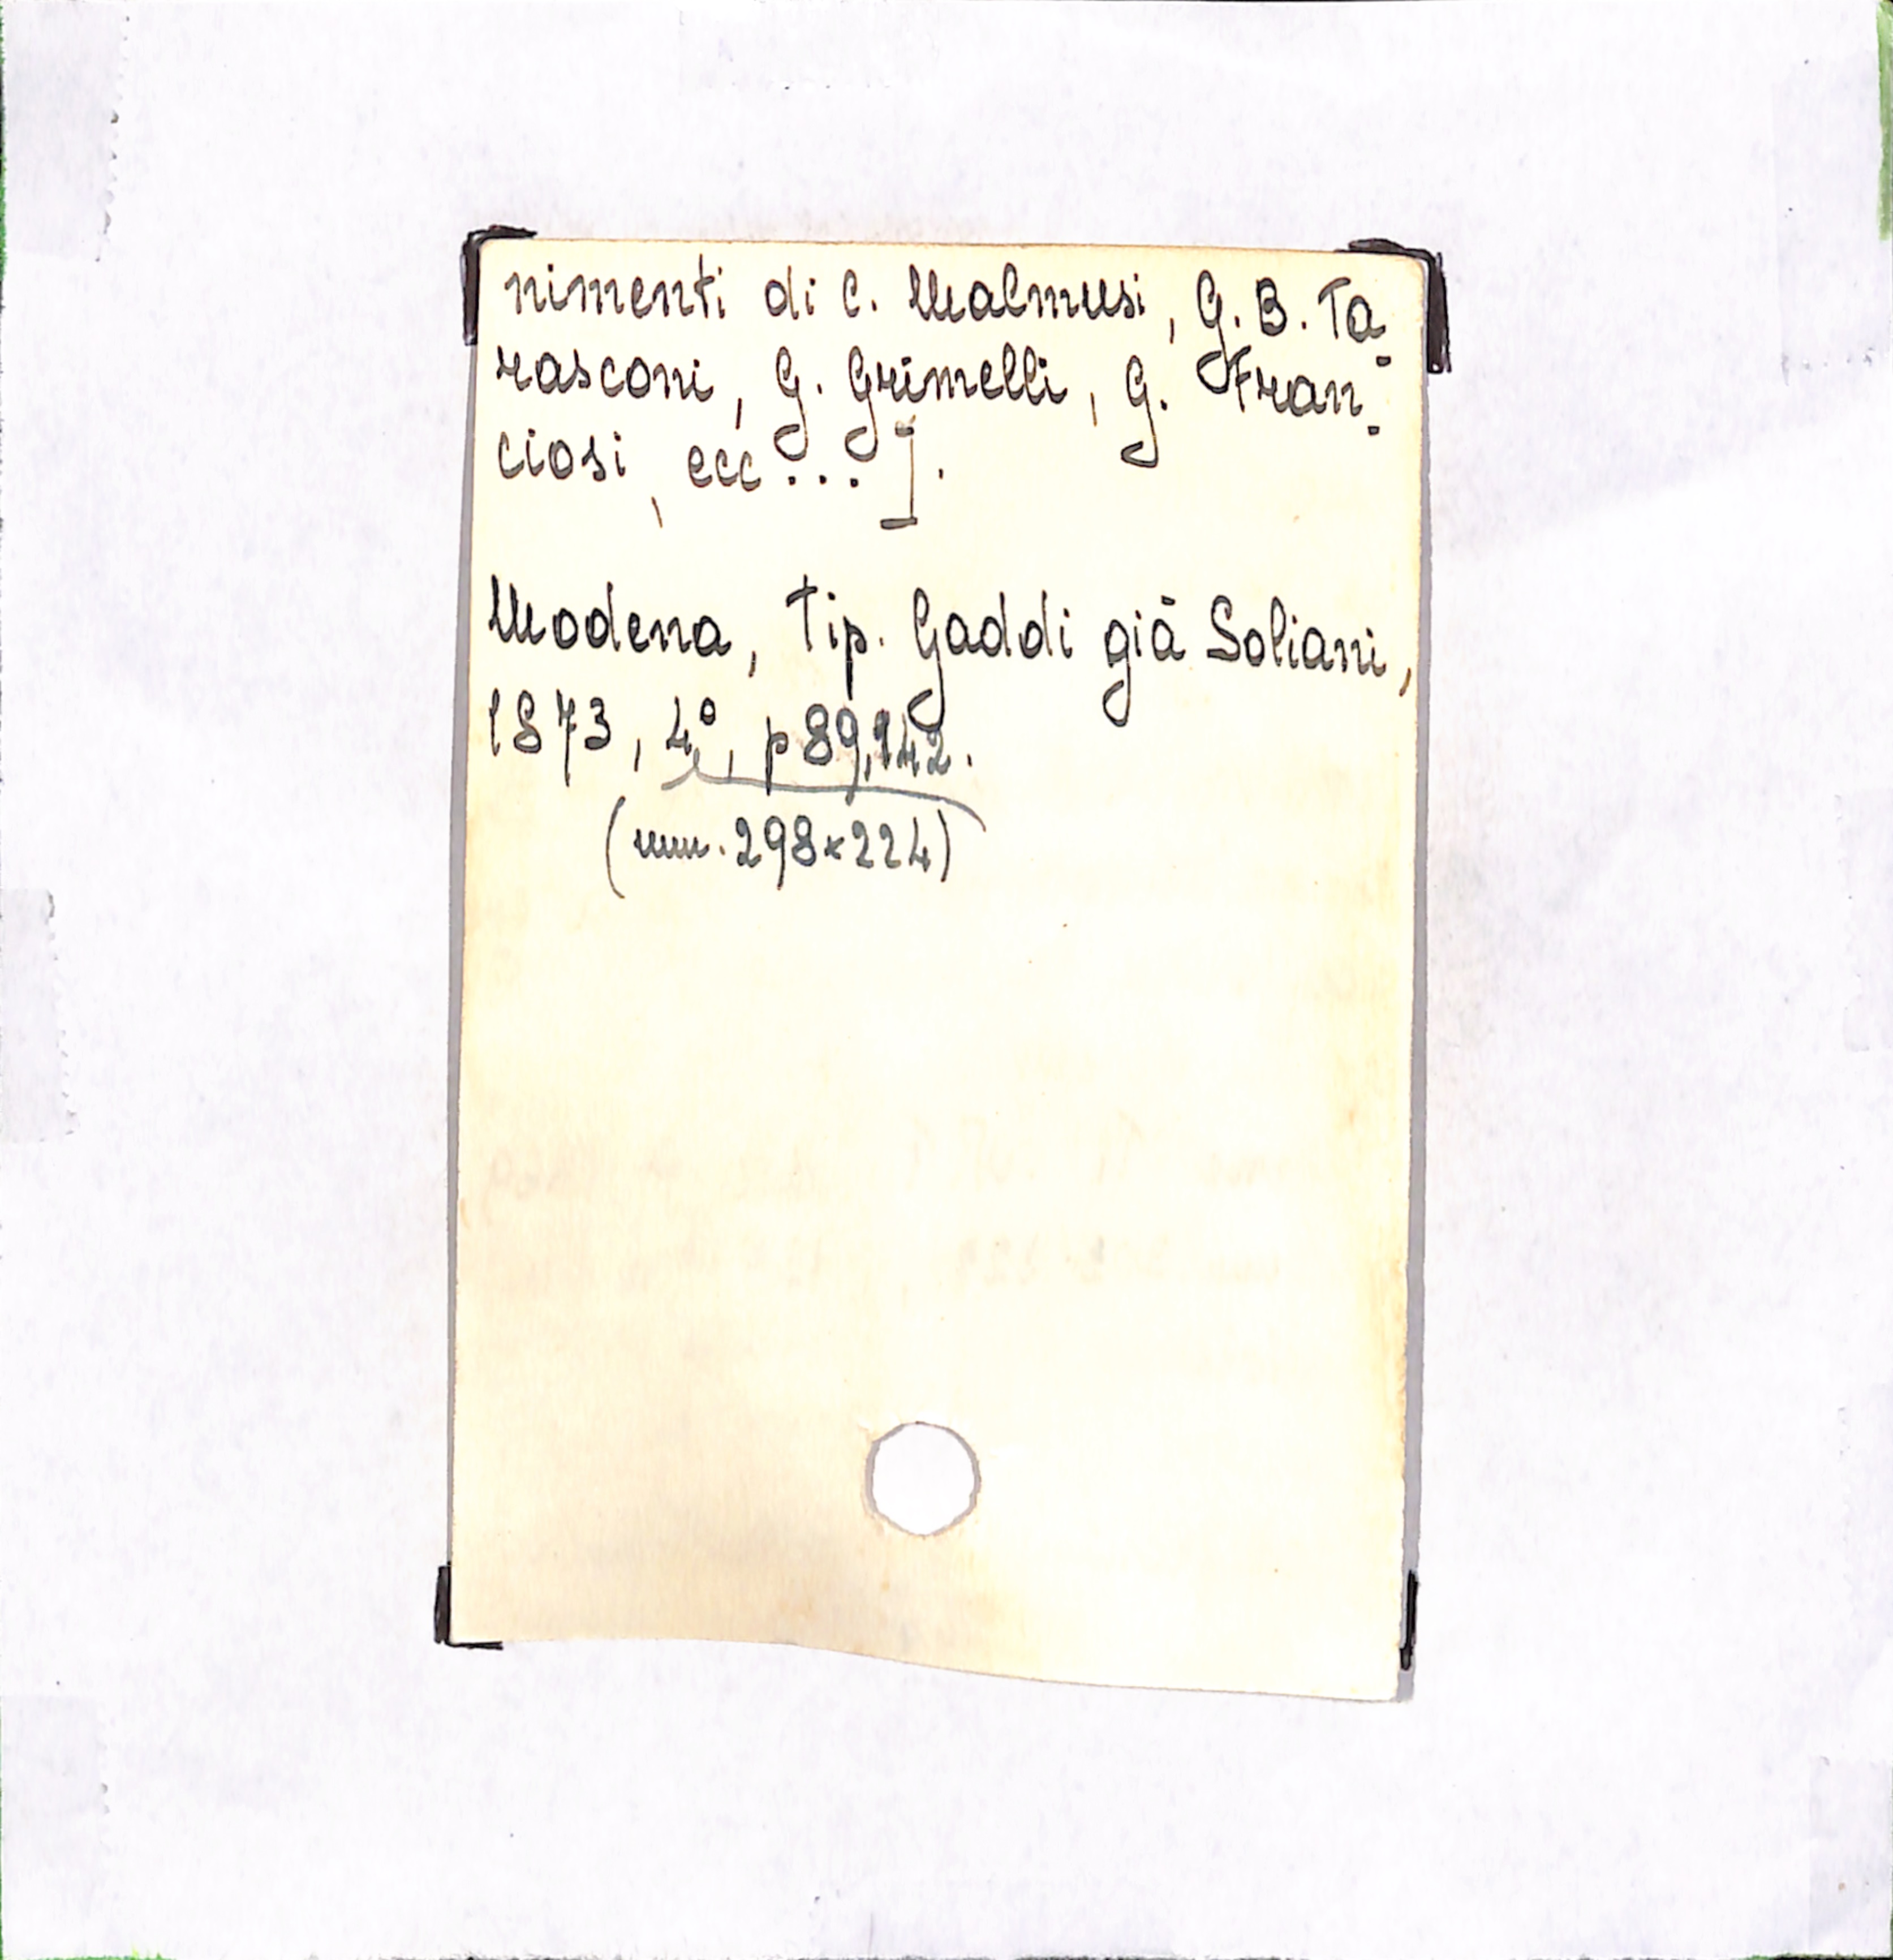 nimenti di C. Malmusi, G. B. Ta-
rasconi, G. Grimelli, G. Fran-
ciosi, ecc...].
Modena, Tip. Gaddi già Soliani,
1873, 4°, p 89,142.
(mm. 298x224)